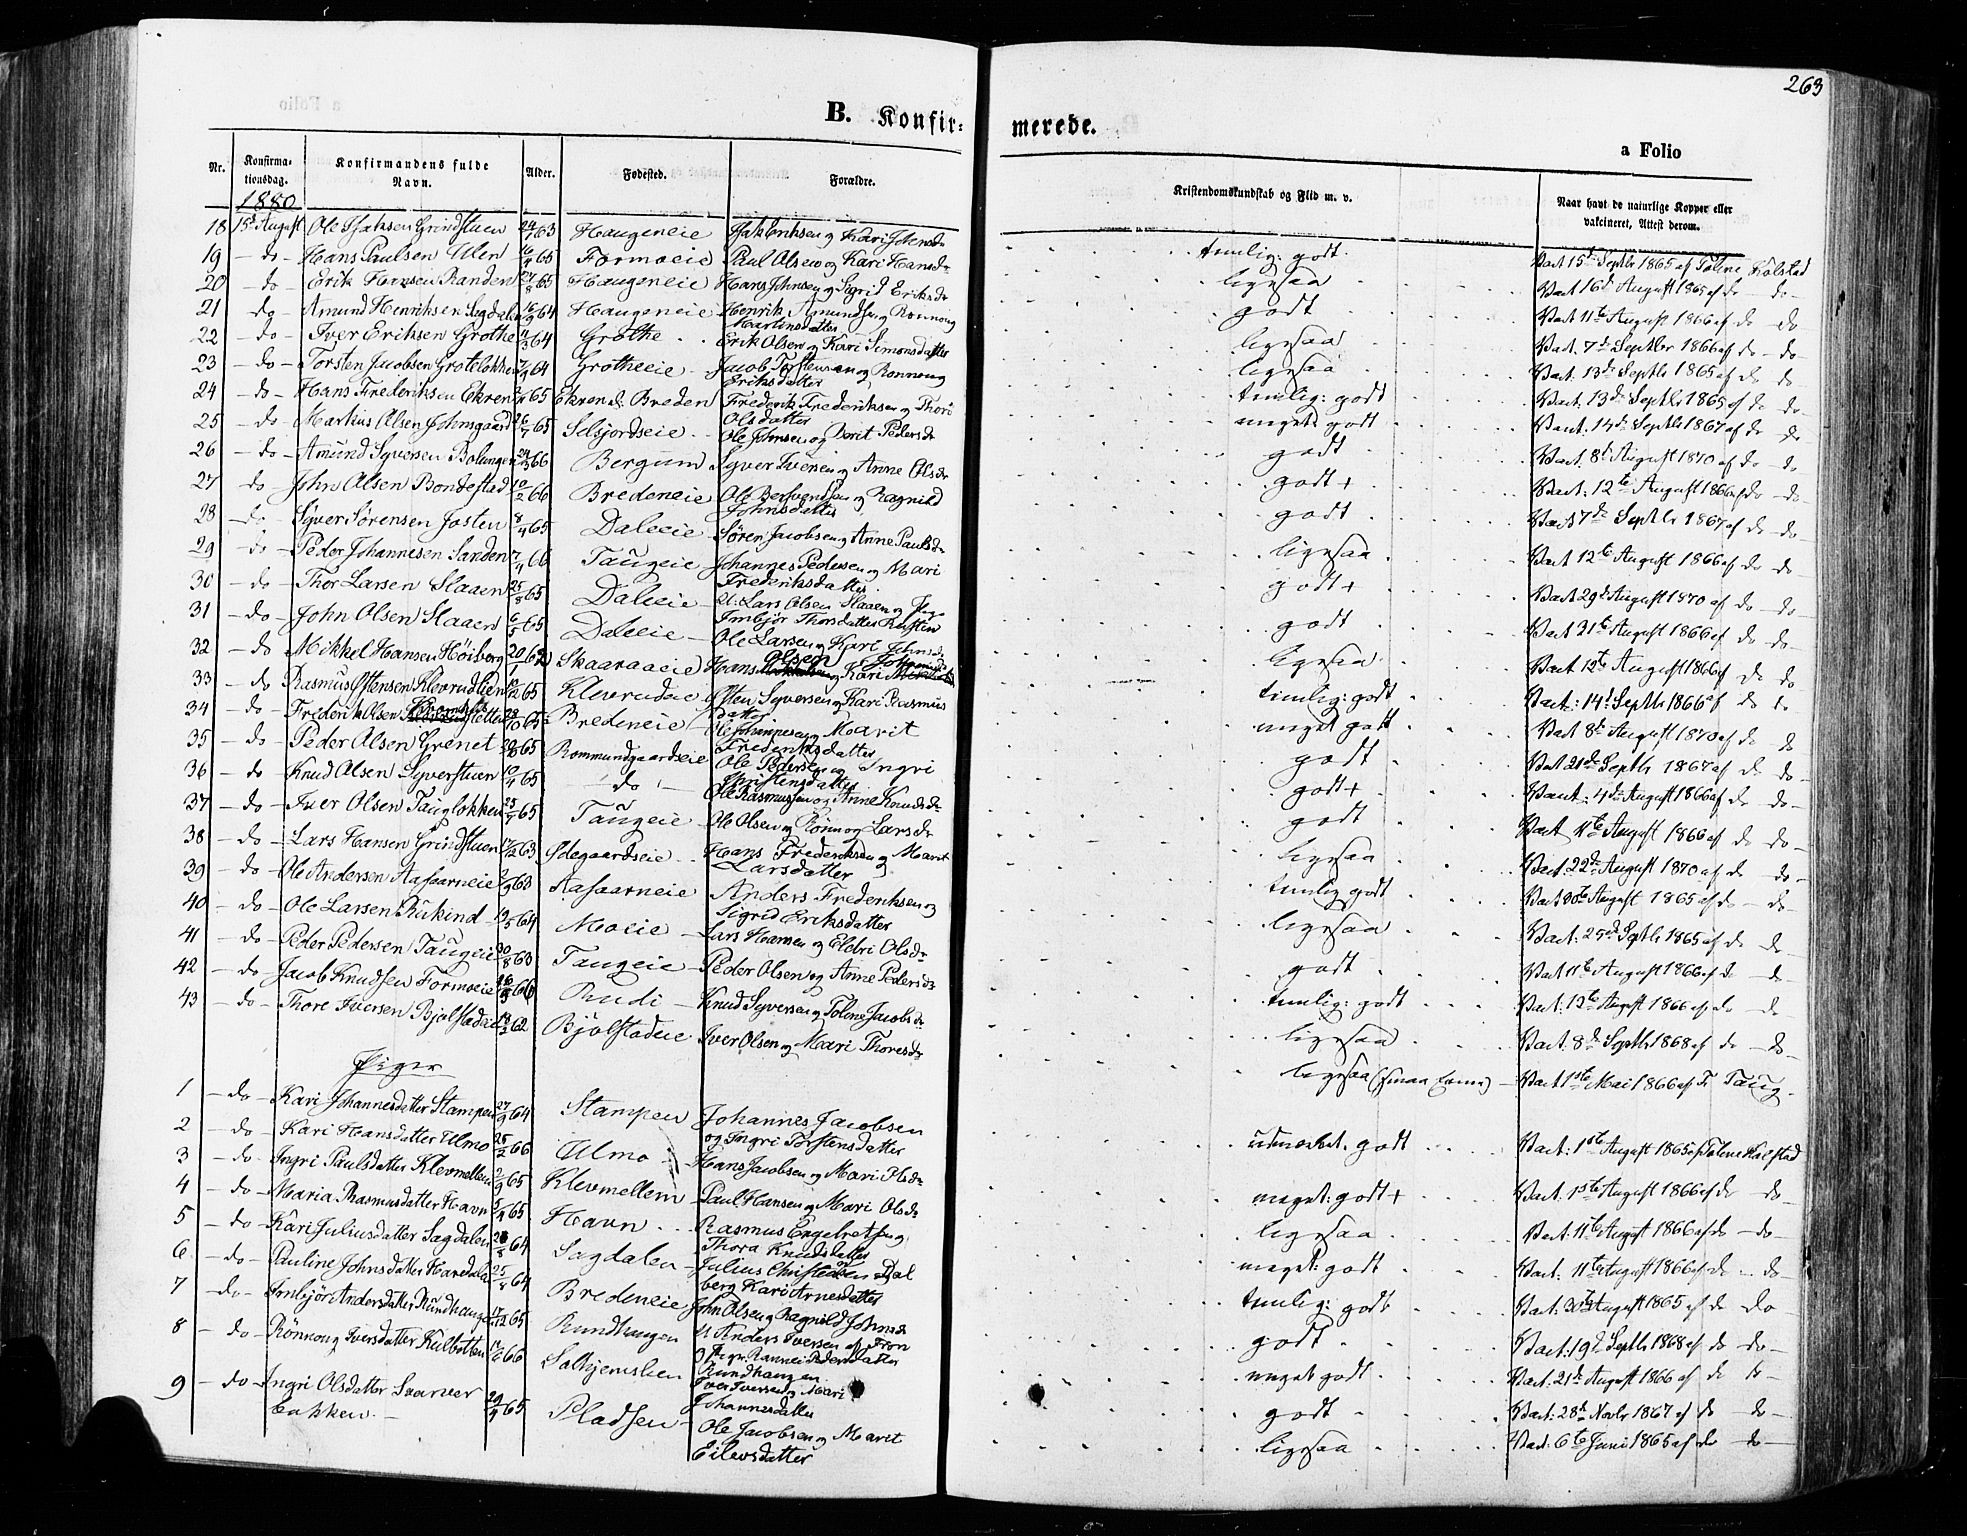 263
B. Konfir= merede.
a Folio
Nr.
Konfirma-
tionsdag.
1880
Konfirmandens fulde
Navn.
Alder.
Fødested.
Forældre.
Kristendomskundskab og Flid m. v.
Naar havt de naturlige Kopper eller
vakcineret, Attest derom.
18 15de August Ole Grindstuen 63 Haugeneie Eriksen og Kari Johnsd. temlig: godt. Vact 15de Septbr 1865 af Toline Kolstad
19 - do - Hans Paulsen Ulen 65 Formoeie Paul Olsen og Kari Hansd. ligesaa Vact 16d August 1865 af do - do -
20 - do - Erik Hansen Randen 27/8 65 Haugeneie Hans Johnsen og Sigrid Eriksd. godt Vact 11te August 1866 af do do
21 - do - Amund Henriksen Sagdalen 64 Haugeneie Henrik Amundsen og Rønnoug
Martinsdatter ligesaa Vact. 7d Septbr 1866 af do - do -
22 - do - Iver Eriksen Grothe 64 Grothe Erik Olsen og Kari Simonsdatter ligesaa Vact. 13de Septbr 1865 af do do
23 - do - Torsten Jacobsen Grotløkken 64 Grotheeie Jacob Torstensen og Rønnoug
Eriksdatter temlig: godt Vact. 13de Septbr 1865 af do do
24 - do - Hans Frederiksen Ekren 65 Ekren Breden Frederik Frederiksen og Thori
Olsdatter meget godt Vact. 14de Septbr 1867 af do do
25 - do - Martius Olsen Johnsgaard 26/7 65 Selsjordseie Ole Johnsen og Dorit Pedersd. godt Vact. 8d August 1870 af do - do
26 - do - Amund Syversen Bolungen 66 Bergum Syver Iversen og Anne Olsd. godt + Vact: 12te August 1866 af do - do -
27 - do - John Olsen Bondestad 10/2 66 Bredeneie Ole og Ragnild
Johnsdatter godt Vact 7de Septbr 1867 af do - do
28 - do - Syver Sørensen Josten 8/4 65 Daleeie Søren Jacobsen og Anne Paulsd. ligesaa Vact 12te August 1866 af do do
29 - do - Peder Johannesen Sanden 7/4 66 Taugeie Johannes Pedersen og Mari
Frederiksdatter godt + Vact 29d August 1870 af do do
30 - do - Thor Larsen Slaaen 25/8 65 Daleeie U. Lars Olsen Slaaen og Pige
Imbjør Thorsdatter godt Vact 21te August 1866 af do do
31 - do - John Olsen Slaaen 6/5 65 Daleeie Ole Larsen og Kari Johnsd. ligesaa Vact 12te August 1866 af do do
32 - do Mikkel Hansen Høiberg 20/1 62 Skaaraaeie Hans Olsen og Kari temlig: godt Vact: 14d Septbr 1866 af do do
33 - do Rasmus Østensen Klevrudlien 65 Klevrudeie Østen Syversen og Kari Rasmus
datter meget godt Vact 8de August 1870 af do do
34 - do - Frederik Olsen 65 Bredeneie Ole og Marit
Frederiksdatter godt Vact 21de Septbr 1867 af do do
35 - do - Peder Olsen Grenet 65 Rommundgaardseie Ole Pedersen og Ingri
Christensdatter godt + Vact: 4de August 1866 af do do -
36 - do - Knud Olsen Syverstuen 10/4 65 - do - Ole Rasmussen og Anne Knudsd. godt Vact 11te August 1866 af do do -
37 - do - Iver Olsen Taugløkken 25/7 65 Taugeie Ole Olsen og Rønnog Larsd. ligesaa Vact: 22de August 1870 af do do -
38 - do - Lars Hansen Grindstuen 63 Ødegaardseie Hans Frederiksen og Marit
Larsdatter temlig godt Vact August 1865 af do - do -
39 - do - Ole Andersen Aasaarneie 2/9 63 Aasaarneie Anders Frederiksen og
Sigrid Eriksdatter ligesaa Vact: 25d Septbr 1865 af do do
40 - do - Ole Larsen Rukind 64 Moeie Lars Hansen og Eldri Olsd. godt Vact 11te August 1866 af do - do -
41 - do - Peder Pedersen Taugeie 30/8 63 Taugeie Peder Olsen og Anne Pedersd. temlig: godt Vact: 12te August 1866 af do - do
42 - do Jacob Knudsen Formoeie 66 Rudi Knud Syversen og Toline Jacobsd. ligesaa Vact. 8d Septbr 1868 af do - do -
43 - do - Thore Iversen Bjølstadeie 62 Bjølstadeie Iver Olsen og Mari Thoresd. ligesaa Vact 1ste Mai 1866 af F. Taug
Piger
1 - do - Kari Johannesdatter Stampen 27/9 64 Stampen Johannes Jacobsen
og Ingri Torstensdatter udmerket godt Vact: 1ste August 1865 af Toline Kolstad
2 - do - Kari Hansdatter Ulmo 25/2 66 Ulmo Hans Jacobsen og Mari Olsd. meget: godt + Vact. 1ste August 1866 af do - do
3 - do - Ingri Paulsdatter Klevmellem 2/9 65 Klevmellem Paul Hansen og Mari Olsd. ligesaa Vact. 11te August 1866 af do - do -
4 - do - Maria Rasmusdatter Havn 65 Havn Rasmus Engebretsen og
Thora Knudsdatter meget: godt Vact: 11te August 1866 af do - do -
5 - do Kari Juliusdatter Sagdalen 64 Sagdalen Julius Christensen Dal
berg Kari Arnesdatter temlig: godt Vact: August 1865 af do do
6 - do - Pauline Johnsdatter 25/8 64 Bredeneie John Olsen og Ragnild Johnsd. godt Vact: 19d Septbr 1868 af do - do -
7 - do - Imbjør Andersdatter Rundhaugen 65 Rundhaugen U. Anders Iversen af Fron
og Pige Rannei Pedersdatter
Rundhaugen meget godt Vact. 21de August 1866 af do do -
8 - do - Rønnoug Iversdatter Kulbotten 66 Solhjemslien Iver Iversen og Mari
Johannesdatter godt Vact: 28d Novbr 1867 af do - do -
9 - do - Ingri Olsdatter Svarver
bakken. - 29/4 65 Pladsen Ole Jacobsen og Marit
Eilevsdatter ligesaa Vact. 6te Juni 1865 af do - do -